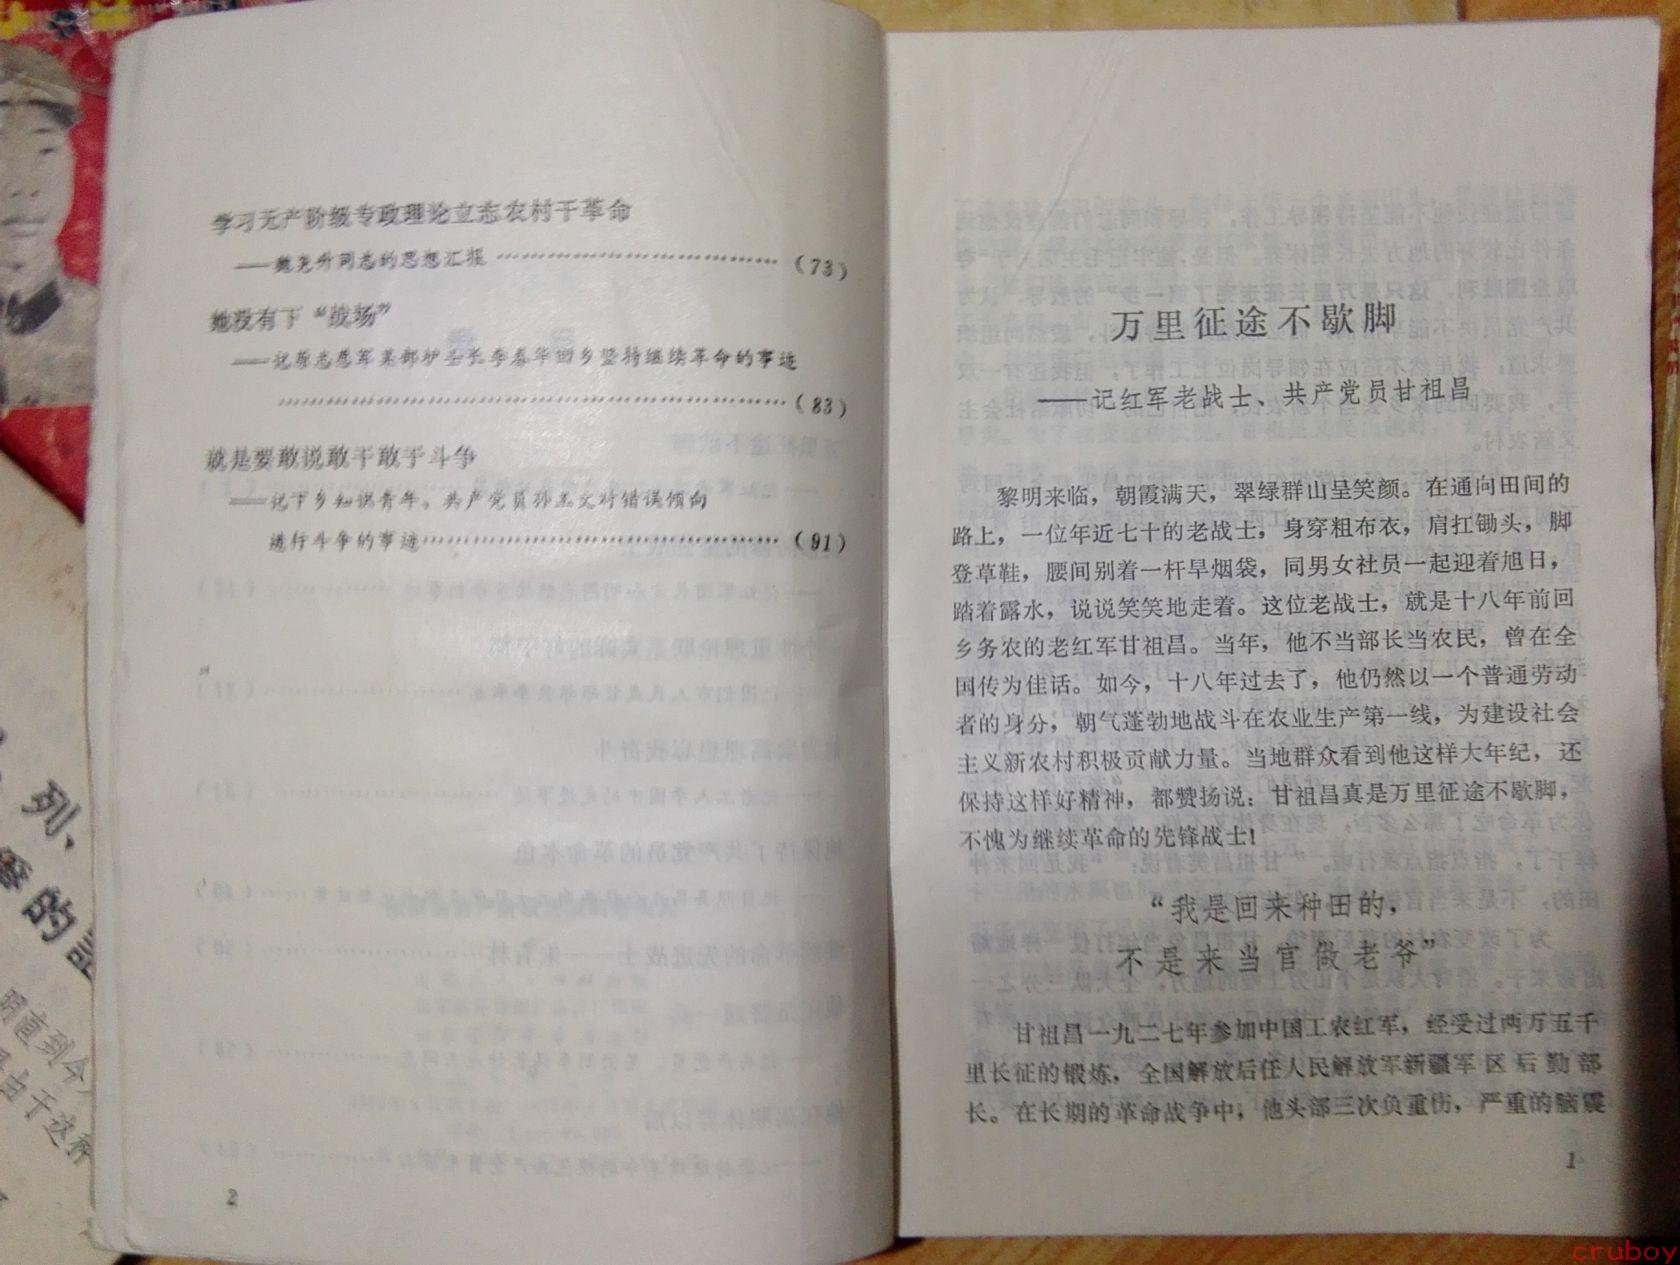 学习无产阶级专政理论立志农村干革命
——魏尧升同志的思想汇报 …………………………(73)
她没有下“战场”
——记原志愿军某部护士长李春华回乡坚持继续革命的事迹
…………………………………………(83)
就是要敢说敢干敢于斗争
——记下乡知识青年、共产党员孙玉文对错误倾向
进行斗争的事迹…………………………(91)
2
万里征途不歇脚
——记红军老战士、共产党员甘祖昌
黎明来临，朝霞满天，翠绿群山呈笑颜。在通向田间的
路上，一位年近七十的老战士，身穿粗布衣，肩扛锄头，脚
登草鞋，腰间别着一杆旱烟袋，同男女社员一起迎着旭日，
踏着露水，说说笑笑地走着。这位老战士，就是十八年前回
乡务农的老红军甘祖昌。当年，他不当部长当农民，曾在全
国传为佳话。如今，十八年过去了，他仍然以一个普通劳动
者的身分，朝气蓬勃地战斗在农业生产第一线，为建设社会
主义新农村积极贡献力量。当地群众看到他这样大年纪，还
保持这样好精神，都赞扬说：甘祖昌真是万里征途不歇脚，
不愧为继续革命的先锋战士！
“我是回来种田的，
不是来当官做老爷”
甘祖昌一九二七年参加中国工农红军，经受过两万五千
里长征的锻炼，全国解放后任人民解放军新疆军区后勤部
长。在长期的革命战争中，他头部三次负重伤，严重的脑震
1
列、
的
明直到今
由于这种
cruboy